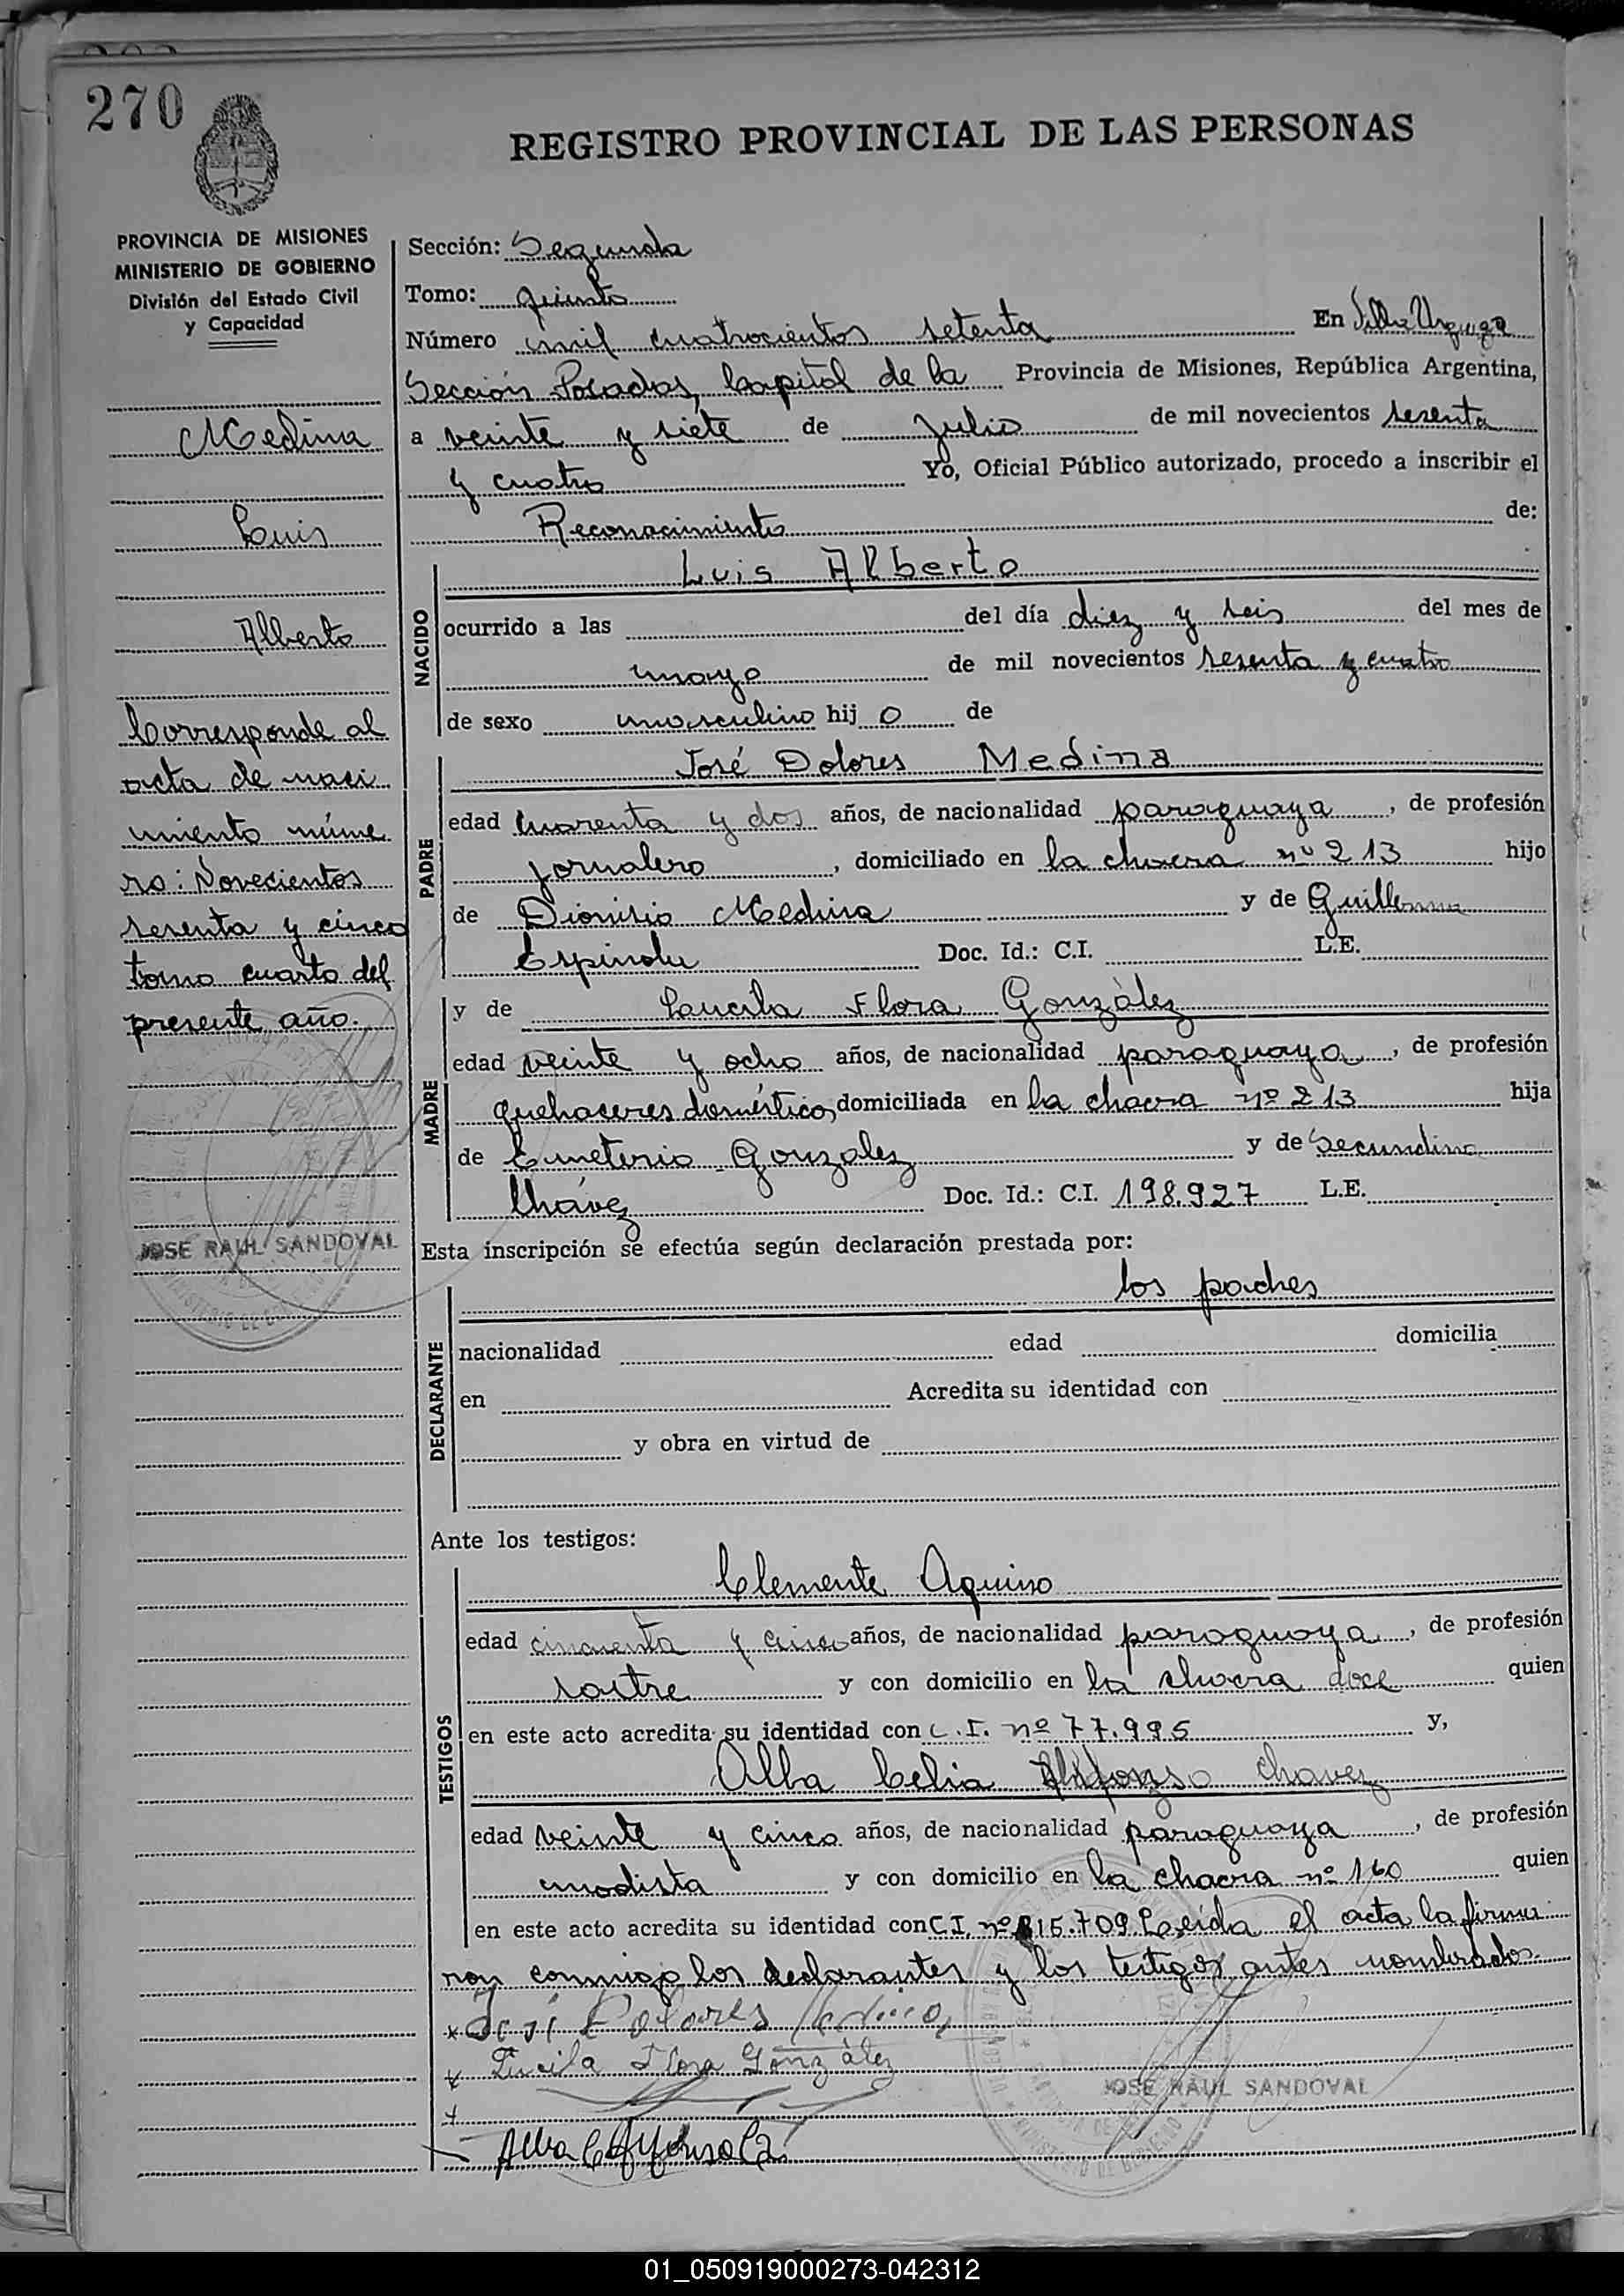 270
REGISTRO PROVINCIAL DE LAS PERSONAS
PROVINCIA DE MISIONES
MINISTERIO DE GOBIERNO
División del Estado Civil
y Capacidad
Medina
Luis
Alberto
Corresponde al
acta de naci
miento núme
ro: Novecientos
sesenta y cinco
tomo cuarto del
presente año.
JOSE RAUL SANDOVAL
Sección: Segunda
Tomo: quinto
Número mil cuatrocientos setenta En Villa Urquiza
Sección Posadas, Capital de la Provincia de Misiones, República Argentina,
a veinte y siete de julio de mil novecientos sesenta
y cuatro Yo, Oficial Público autorizado, procedo a inscribir el
Reconocimiento de:
NACIDO
Luis Alberto
ocurrido a las del día diez y seis del mes de
mayo de mil novecientos sesenta y cuatro
de sexo masculino hij o de
PADRE
José Dolores Medina
edad cuarenta y dos años, de nacionalidad paraguaya, de profesión
jornalero, domiciliado en la chacra nº 213 hijo
de Dionisio Medina y de Guillerma
Espindola Doc. Id.: C.I. L.E.
MADRE
y de Lucila Flora Gonzàlez
edad veinte y ocho años, de nacionalidad paraguaya, de profesión
quehaceres domésticos, domiciliada en la chacra nº 213 hija
de Emeterio Gonzalez y de Secundina
Chávez Doc. Id.: C.I. 198.927 L.E.
Esta inscripción se efectúa según declaración prestada por:
DECLARANTE
los padres
nacionalidad edad domicilia
en Acredita su identidad con
y obra en virtud de
Ante los testigos:
TESTIGOS
Clemente Aquino
edad cincuenta y cinco años, de nacionalidad paraguaya, de profesión
sastre y con domicilio en la chacra doce quien
en este acto acredita su identidad con C.I. nº 77.995 y,
Alba Celia Chavez
edad veinte y cinco años, de nacionalidad paraguaya, de profesión
modista y con domicilio en la chacra nº 160 quien
en este acto acredita su identidad con C.I. nº 15.709 Leída el acta la firma
ron conmigo los declarantes y los testigos antes nombrados.
José Dolores Medina
Lucila Flora Gonzàlez
JOSE RAUL SANDOVAL
Alba C. Afonso Ch.
01_050919000273-042312